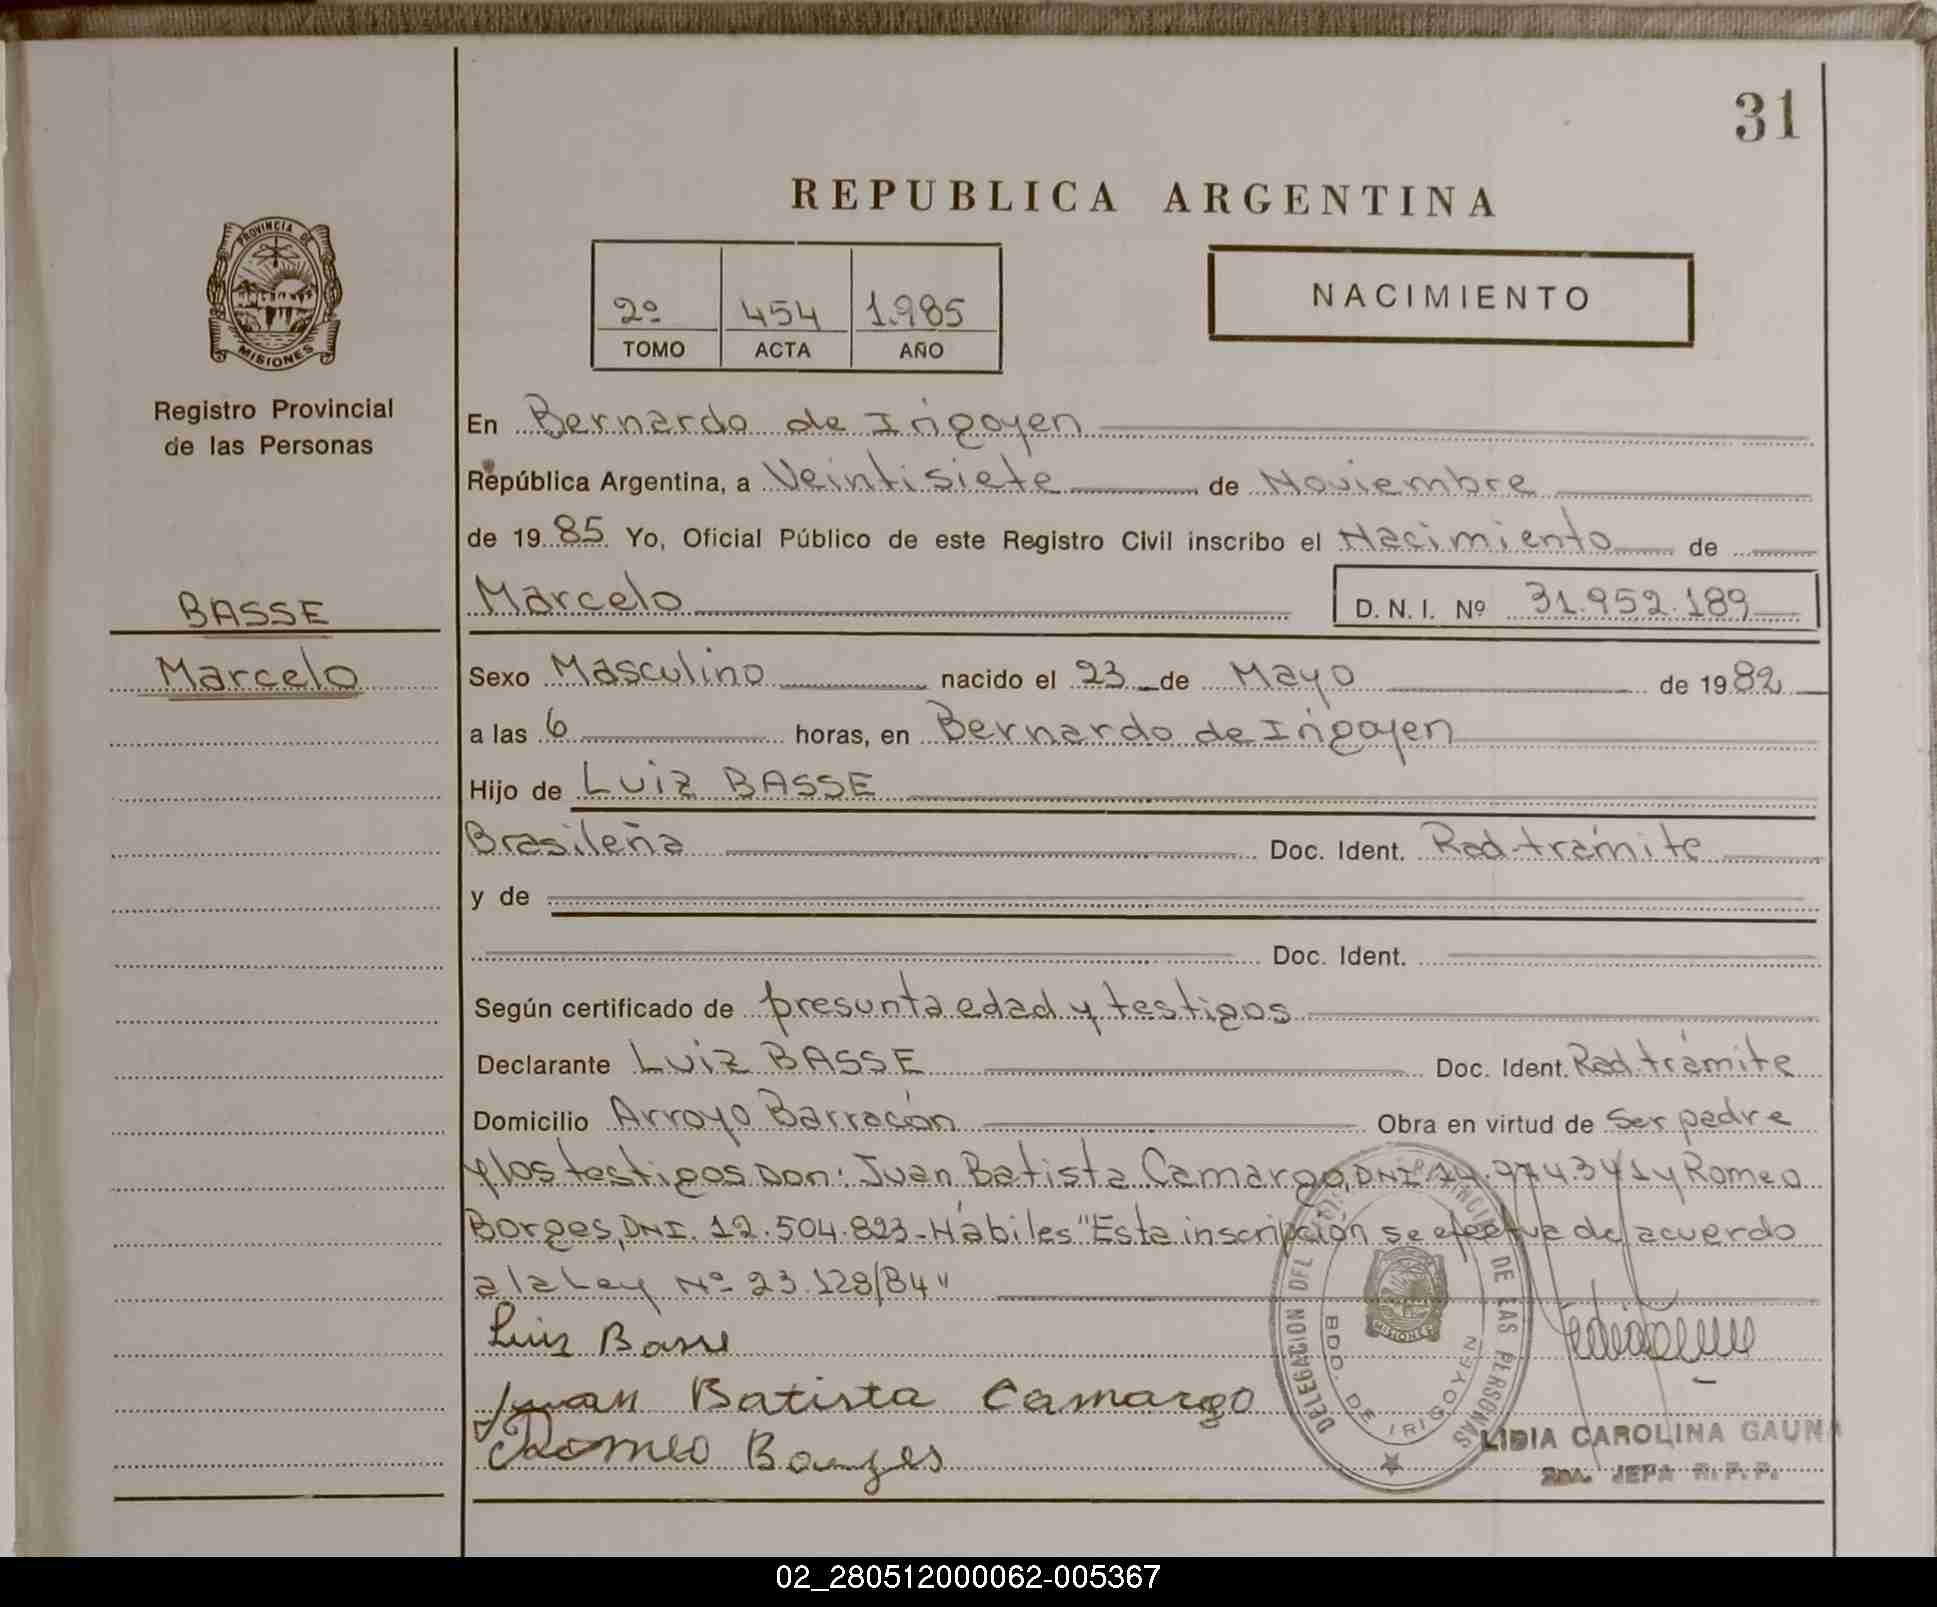 31
REPUBLICA ARGENTINA
PROVINCIA DE
MISIONES
2º 454 1.985
TOMO ACTA AÑO
NACIMIENTO
Registro Provincial
de las Personas
BASSE
Marcelo
En Bernardo de Irigoyen
República Argentina, a Veintisiete de Noviembre
de 1985 Yo, Oficial Público de este Registro Civil inscribo el Nacimiento de
Marcelo D.N.I. Nº 31.952.189
Sexo Masculino nacido el 23 de Mayo de 1982
a las 6 horas, en Bernardo de Irigoyen
Hijo de Luiz BASSE
Brasileña Doc. Ident. Rad. trámite
y de
Doc. Ident.
Según certificado de presunta edad y testigos
Declarante Luiz BASSE Doc. Ident. Rad. trámite
Domicilio Arroyo Barracón Obra en virtud de ser padre
y los testigos Don: Juan Batista Camargo, DNI. 14.974.341 y Romeo
Borges, DNI. 12.504.823- Hábiles "Esta inscripción se efectua de acuerdo
a la Ley Nº 23.128/84"
Luiz Basse
Juan Batista Camargo
Romeo Borges
DELEGACION DEL PROVINCIAL DE LAS PERSONAS
BDO. DE IRIGOYEN
MISIONES
LIDIA CAROLINA GAUNA
2da. JEFA R. P. P.
02_280512000062-005367